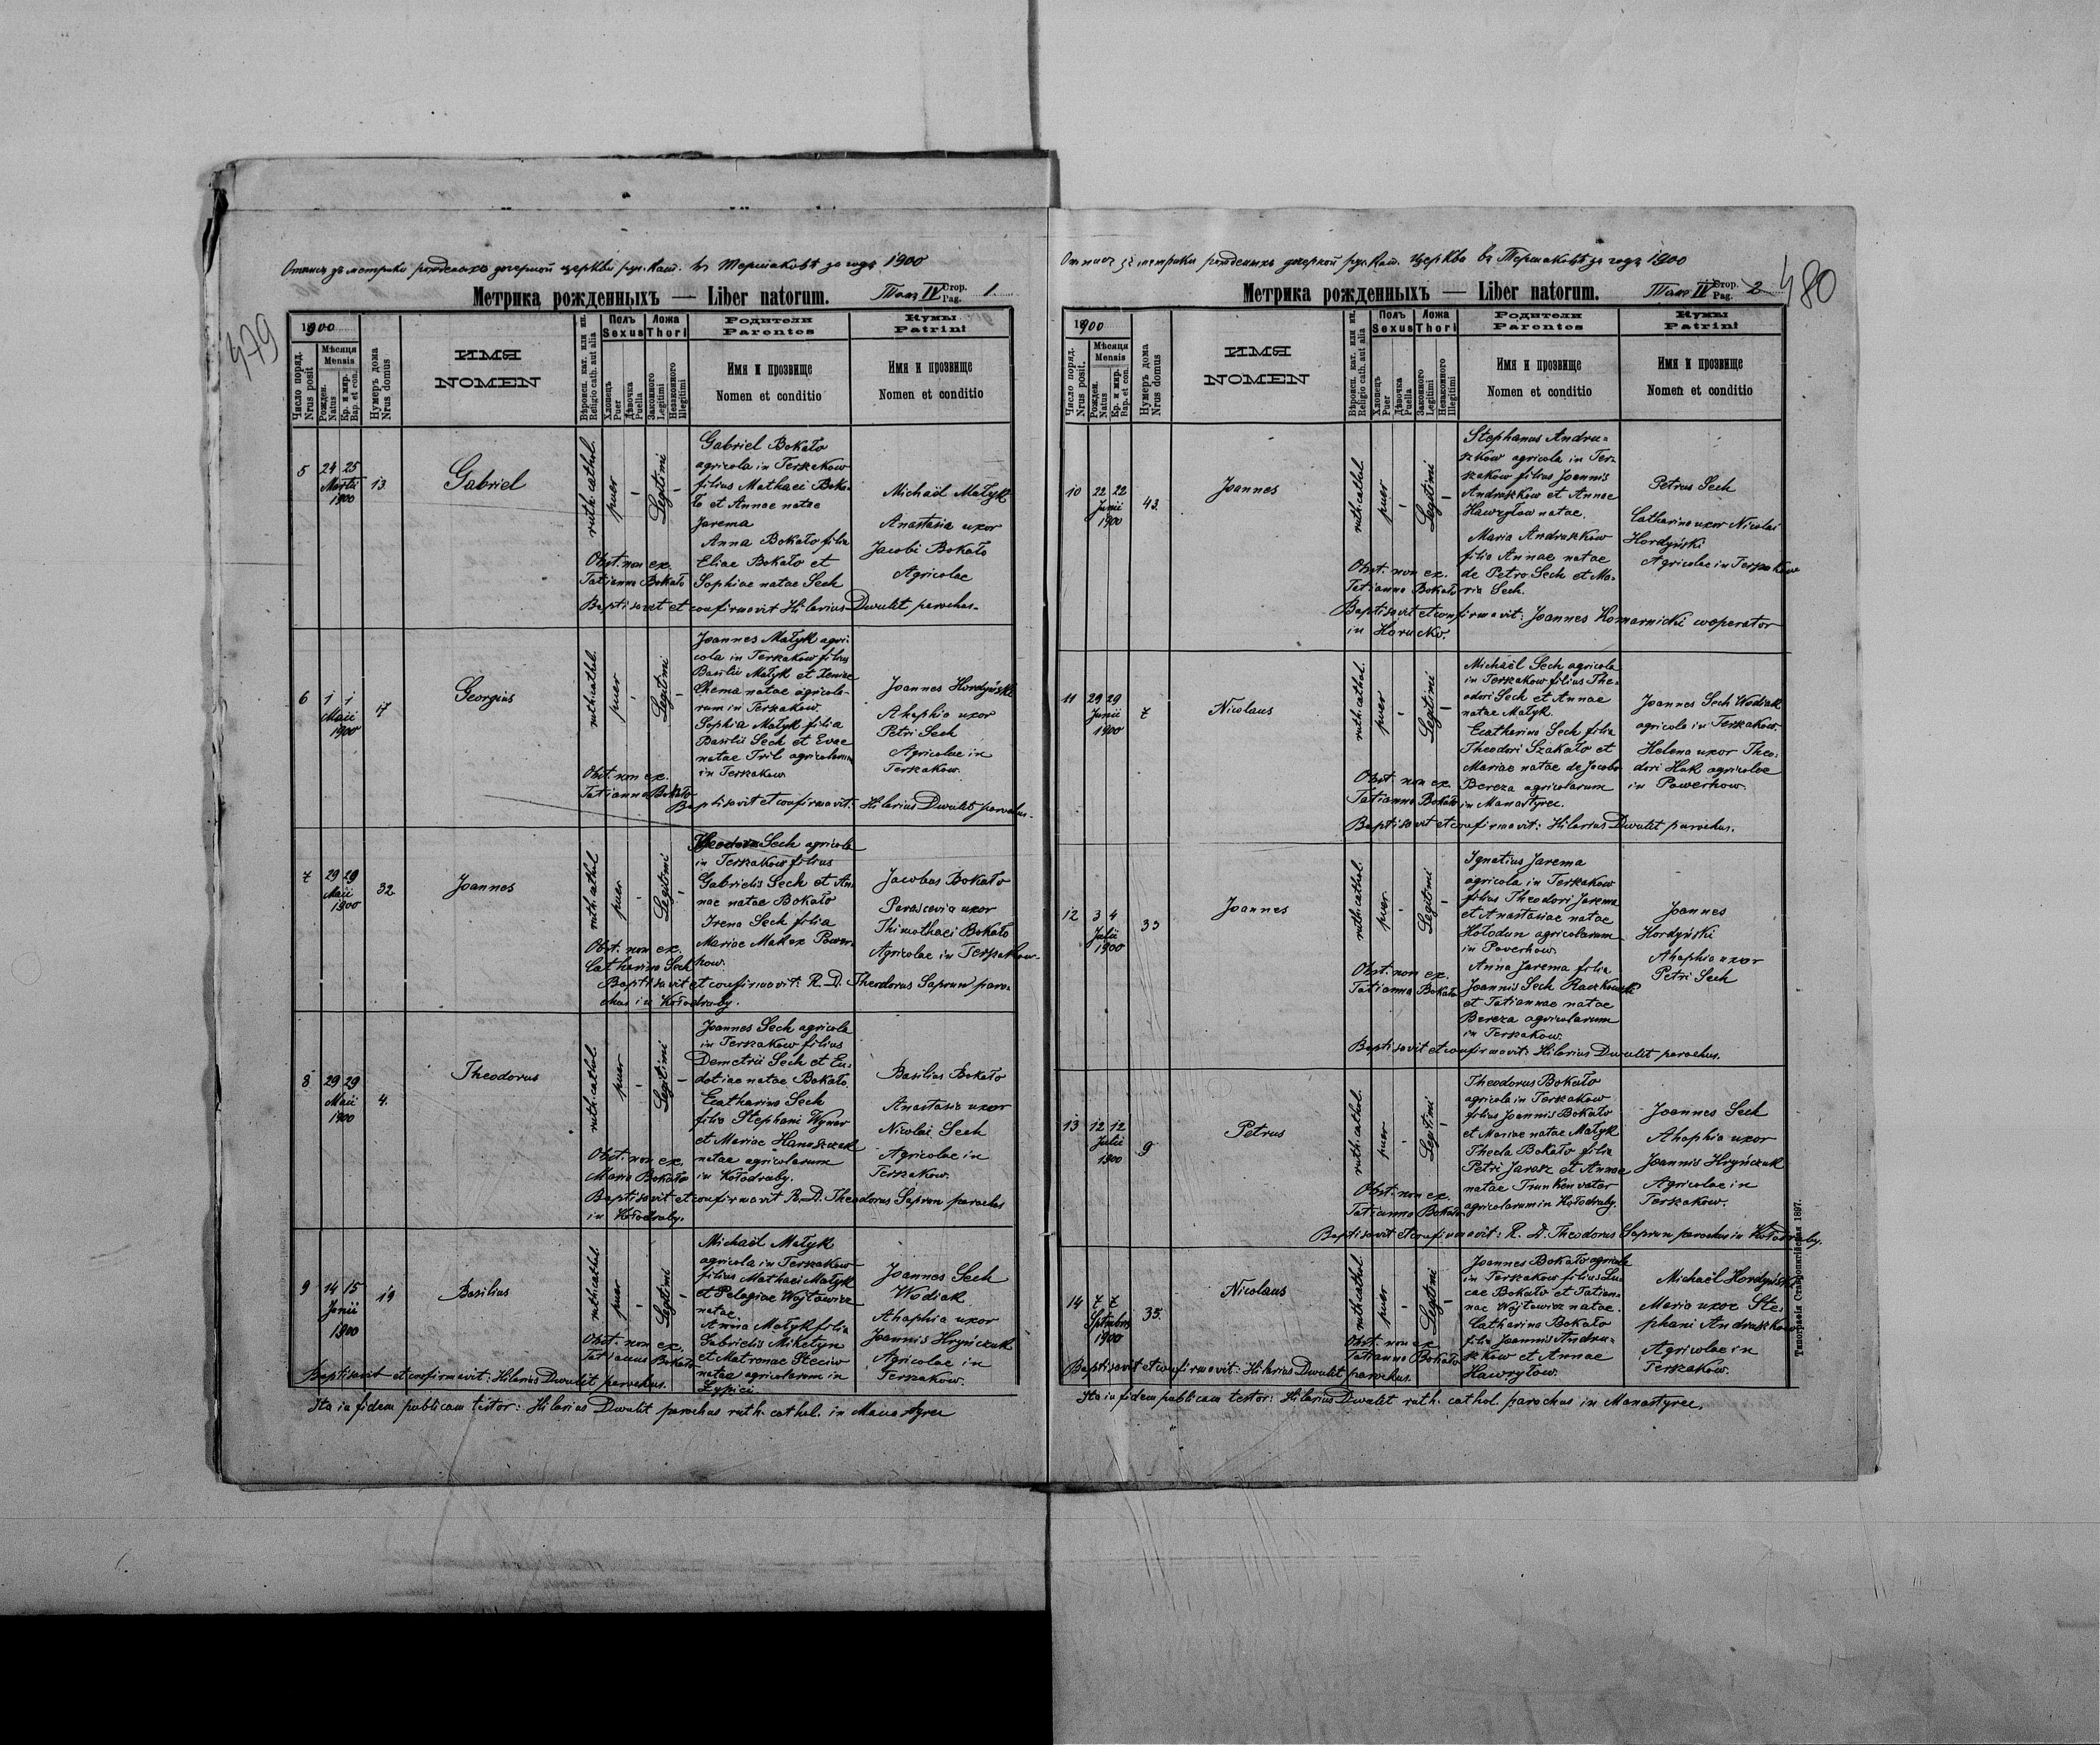 479
Отпись зъ метрики рожденыхъ дочерной церкви рус. кат. въ Тершаковѣ за годъ 1900
Метрика рожденныхъ — Liber natorum. Томъ IV Стор. Pag. 1.
1900
Число поряд.
Nrus posit
Мѣсяця
Mensis
Рожден.
Natus
Кр. и мир.
Bap. et con.
Нумеръ дома
Nrus domus
ИМЯ
NOMEN
Вѣроисп. кат. или ин.
Religio cath. aut alia
Полъ
Sexus
Хлопець
Puer
Дѣвочка
Puella
Ложа
Thori
Законного
Legitimi
Незаконного
Illegitimi
Родители
Parentes
Имя и прозвище
Nomen et conditio
Кумы
Patrini
Имя и прозвище
Nomen et conditio
5
24 25
Martii
1900
13
Gabriel
ruth. cathol.
puer
Legitimi
Gabriel Bokało
agricola in Terszakow
filius Mathaei Boka-
ło et Annae natae
Jarema
Anna Bokało filia
Eliae Bokało et
Sophiae natae Sech
Michaël Małyk
Anastasia uxor
Jacobi Bokało
Agricolae
Obst. non ex.
Tatianna Bokało
Baptisavit et confirmavit Hilarius Dwulit parochus.
6
1 1
Maii
1900
17
Georgius
ruth. cathol.
puer
Legitimi
Joannes Małyk agri-
cola in Terszakow filius
Basilii Małyk et Xeniae
Chema natae agricola-
rum in Terszakow.
Sophia Małyk filia
Basilii Sech et Evae
natae Tril agricolarum
in Terszakow
Joannes Hordyński
Ahaphia uxor
Petri Sech
Agricolae in
Terszakow.
Obst. non ex.
Tatianna Bokało
Baptisavit et confirmavit: Hilarius Dwulit parochus.
7
29 29
Maii
1900
32
Joannes
ruth. cathol.
puer
Legitimi
Theodorus Sech agricola
in Terszakow filius
Gabrielis Sech et An-
nae natae Bokało
Irena Sech filia
Mariae Makex Power-
how.
Jacobus Bokało
Parascevia uxor
Thimothaei Bokało
Agricolae in Terszakow.
Obst. non ex.
Catharina Sech
Baptisavit et confirmavit: R. D. Theodorus Saprun paro-
chus in Kołodruby.
8
29 29
Maii
1900
4.
Theodorus
ruth. cathol.
puer
Legitimi
Joannes Sech agricola
in Terszakow filius
Demetrii Sech et Eu-
dotiae natae Bokało.
Catharina Sech
filia Stephani Wynar
et Mariae Hanuszczak
natae agricolarum
in Kołodruby.
Basilius Bokało
Anastasia uxor
Nicolai Sech
Agricolae in
Terszakow.
Obst. non ex.
Maria Bokało
Baptisavit et confirmavit R. D. Theodorus Saprun parochus
in Kołodruby.
9
14 15
Junii
1900
19
Basilius
ruth. cathol.
puer
Legitimi
Michaël Małyk
agricola in Terszakow
filius Mathaei Małyk
et Pelagiae Wojtowicz
natae
Anna Małyk filia
Gabrielis Miketyn
et Matronae Steciw
natae agricolarum in
Łypici.
Joannes Sech
Wodiak
Ahaphia uxor
Joannis Hryńczuk
Agricolae in
Terszakow.
Obst. non ex.
Tatianna Bokało
Baptisavit et confirmavit: Hilarius Dwulit parochus.
Ita in fidem publicam testor: Hilarius Dwulit parochus ruth. cathol. in Manastyrec
480
Отпись зъ метрики рожденыхъ дочерной рус. кат. церкви въ Тершаковѣ за годъ 1900
Метрика рожденныхъ — Liber natorum. Томъ IV Стор. Pag. 2
1900
Число поряд.
Nrus posit.
Мѣсяця
Mensis
Рожден.
Natus
Кр. и мир.
Bap. et con.
Нумеръ дома
Nrus domus
ИМЯ
NOMEN
Вѣроисп. кат. или ин.
Religio cath. aut alia
Полъ
Sexus
Хлопець
Puer
Дѣвочка
Puella
Ложа
Thori
Законного
Legitimi
Незаконного
Illegitimi
Родители
Parentes
Имя и прозвище
Nomen et conditio
Кумы
Patrini
Имя и прозвище
Nomen et conditio
10
22 22
Junii
1900
43.
Joannes
ruth. cathol.
puer
Legitimi
Stephanus Andru-
szkow agricola in Ter-
szakow filius Joannis
Andruszkow et Annae
Hawryłow natae.
Maria Andruszkow
filia Annae natae
de Petro Sech et Ma-
ria Sech.
Petrus Sech
Catharina uxor Nicolai
Hordyński
Agricolae in Terszakow
Obst. non ex.
Tatianna Bokało
Baptisavit et confirmavit: Joannes Komarnicki cooperator
in Horucko.
11
29 29
Junii
1900
7
Nicolaus
ruth. cathol.
puer
Legitimi
Michaël Sech agricola
in Terszakow filius The-
odori Sech et Annae
natae Małyk.
Catharina Sech filia
Theodori Szakało et
Mariae natae de Jacobo
Bereza agricolarum
in Manastyrec.
Joannes Sech Wodiak
agricola in Terszakow.
Helena uxor Theo-
dori Huk agricolae
in Powerhow.
Obst. non ex.
Tatianna Bokało
Baptisavit et confirmavit: Hilarius Dwulit parochus.
12
3 4
Julii
1900
33
Joannes
ruth. cathol.
puer
Legitimi
Ignatius Jarema
agricola in Terszakow
filius Theodori Jarema
et Anastasiae natae
Hołodun agricolarum
in Poverhow.
Anna Jarema filia
Joannis Sech Raczkowski
et Tatiannae natae
Bereza agricolarum
in Terszakow.
Joannes
Hordyński
Ahaphia uxor
Petri Sech
Obst. non ex.
Tatianna Bokało
Baptisavit et confirmavit: Hilarius Dwulit parochus.
13
12 12
Julii
1900
9
Petrus
ruth. cathol.
puer
Legitimi
Theodorus Bokało
agricola in Terszakow
filius Joannis Bokało
et Mariae natae Małyk
Thecla Bokało filia
Petri Jarosz et Annae
natae Trunkenvater
agricolarum in Kołodruby.
Joannes Sech
Ahaphia uxor
Joannis Hryńczuk
Agricolae in
Terszakow.
Obst. non ex.
Tatianna Bokało
Baptisavit et confirmavit: R. D. Theodorus Saprun parochus in Kołodruby.
14
7 7
Septembris
1900
35.
Nicolaus
ruth. cathol.
puer
Legitimi
Joannes Bokało agricola
in Terszakow filius Lu-
cae Bokało et Tatian-
nae Wojtowicz natae.
Catharina Bokało
filia Joannis Andru-
szkow et Annae
Hawryłow.
Michaël Hordyński
Maria uxor Ste-
phani Andruszkow
Agricolae in
Terszakow.
Obst. non ex
Tatianna Bokało
Baptisavit et confirmavit: Hilarius Dwulit parochus.
Ita in fidem publicam testor: Hilarius Dwulit ruth. cathol. parochus in Manastyrec.
Типографія Ставропигійская 1897.